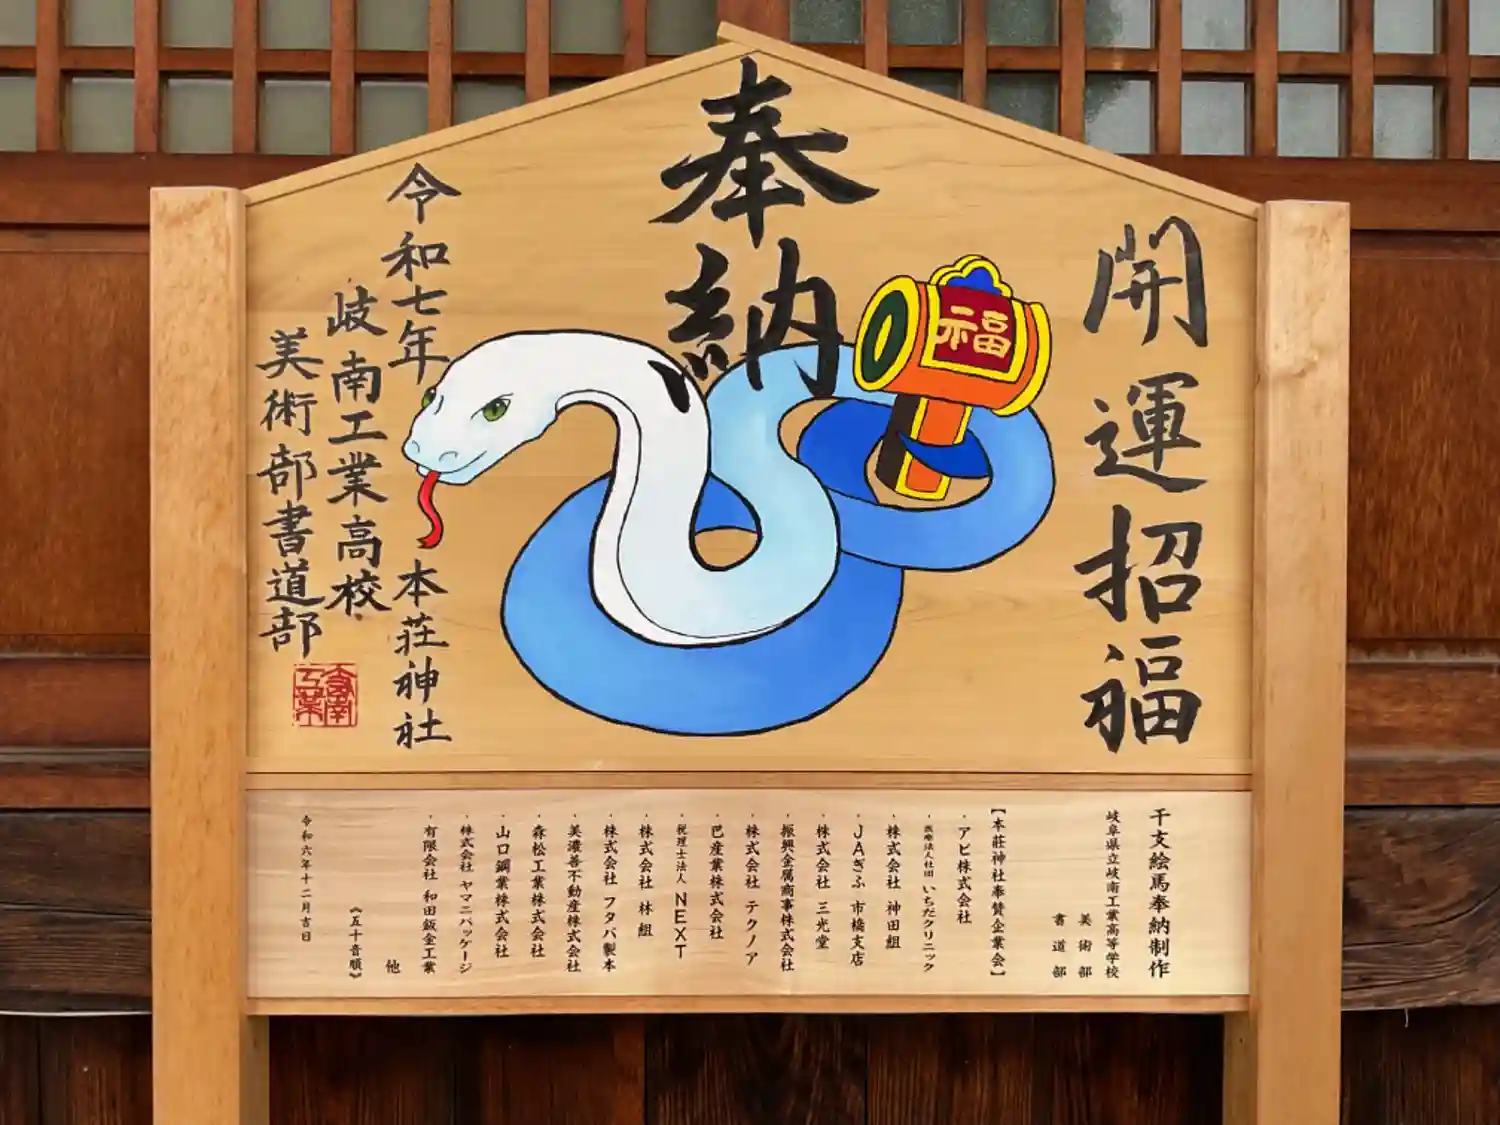 奉納
開運招福
福
令和七年 本荘神社
岐南工業高校
美術部書道部
岐南工業
干支絵馬奉納制作
岐阜県立岐南工業高等学校
美術部
書道部
【本荘神社奉賛企業会】
・アピ株式会社
・医療法人社団 いちだクリニック
・株式会社 神田組
・JAぎふ 市橋支店
・株式会社 三光堂
・振興金属商事株式会社
・株式会社 テクノア
・巴産業株式会社
・税理士法人 NEXT
・株式会社 林組
・株式会社 フタバ製本
・美濃善不動産株式会社
・森松工業株式会社
・山口鋼業株式会社
・株式会社 ヤマニパッケージ
・有限会社 和田鈑金工業
他
《五十音順》
令和六年十二月吉日